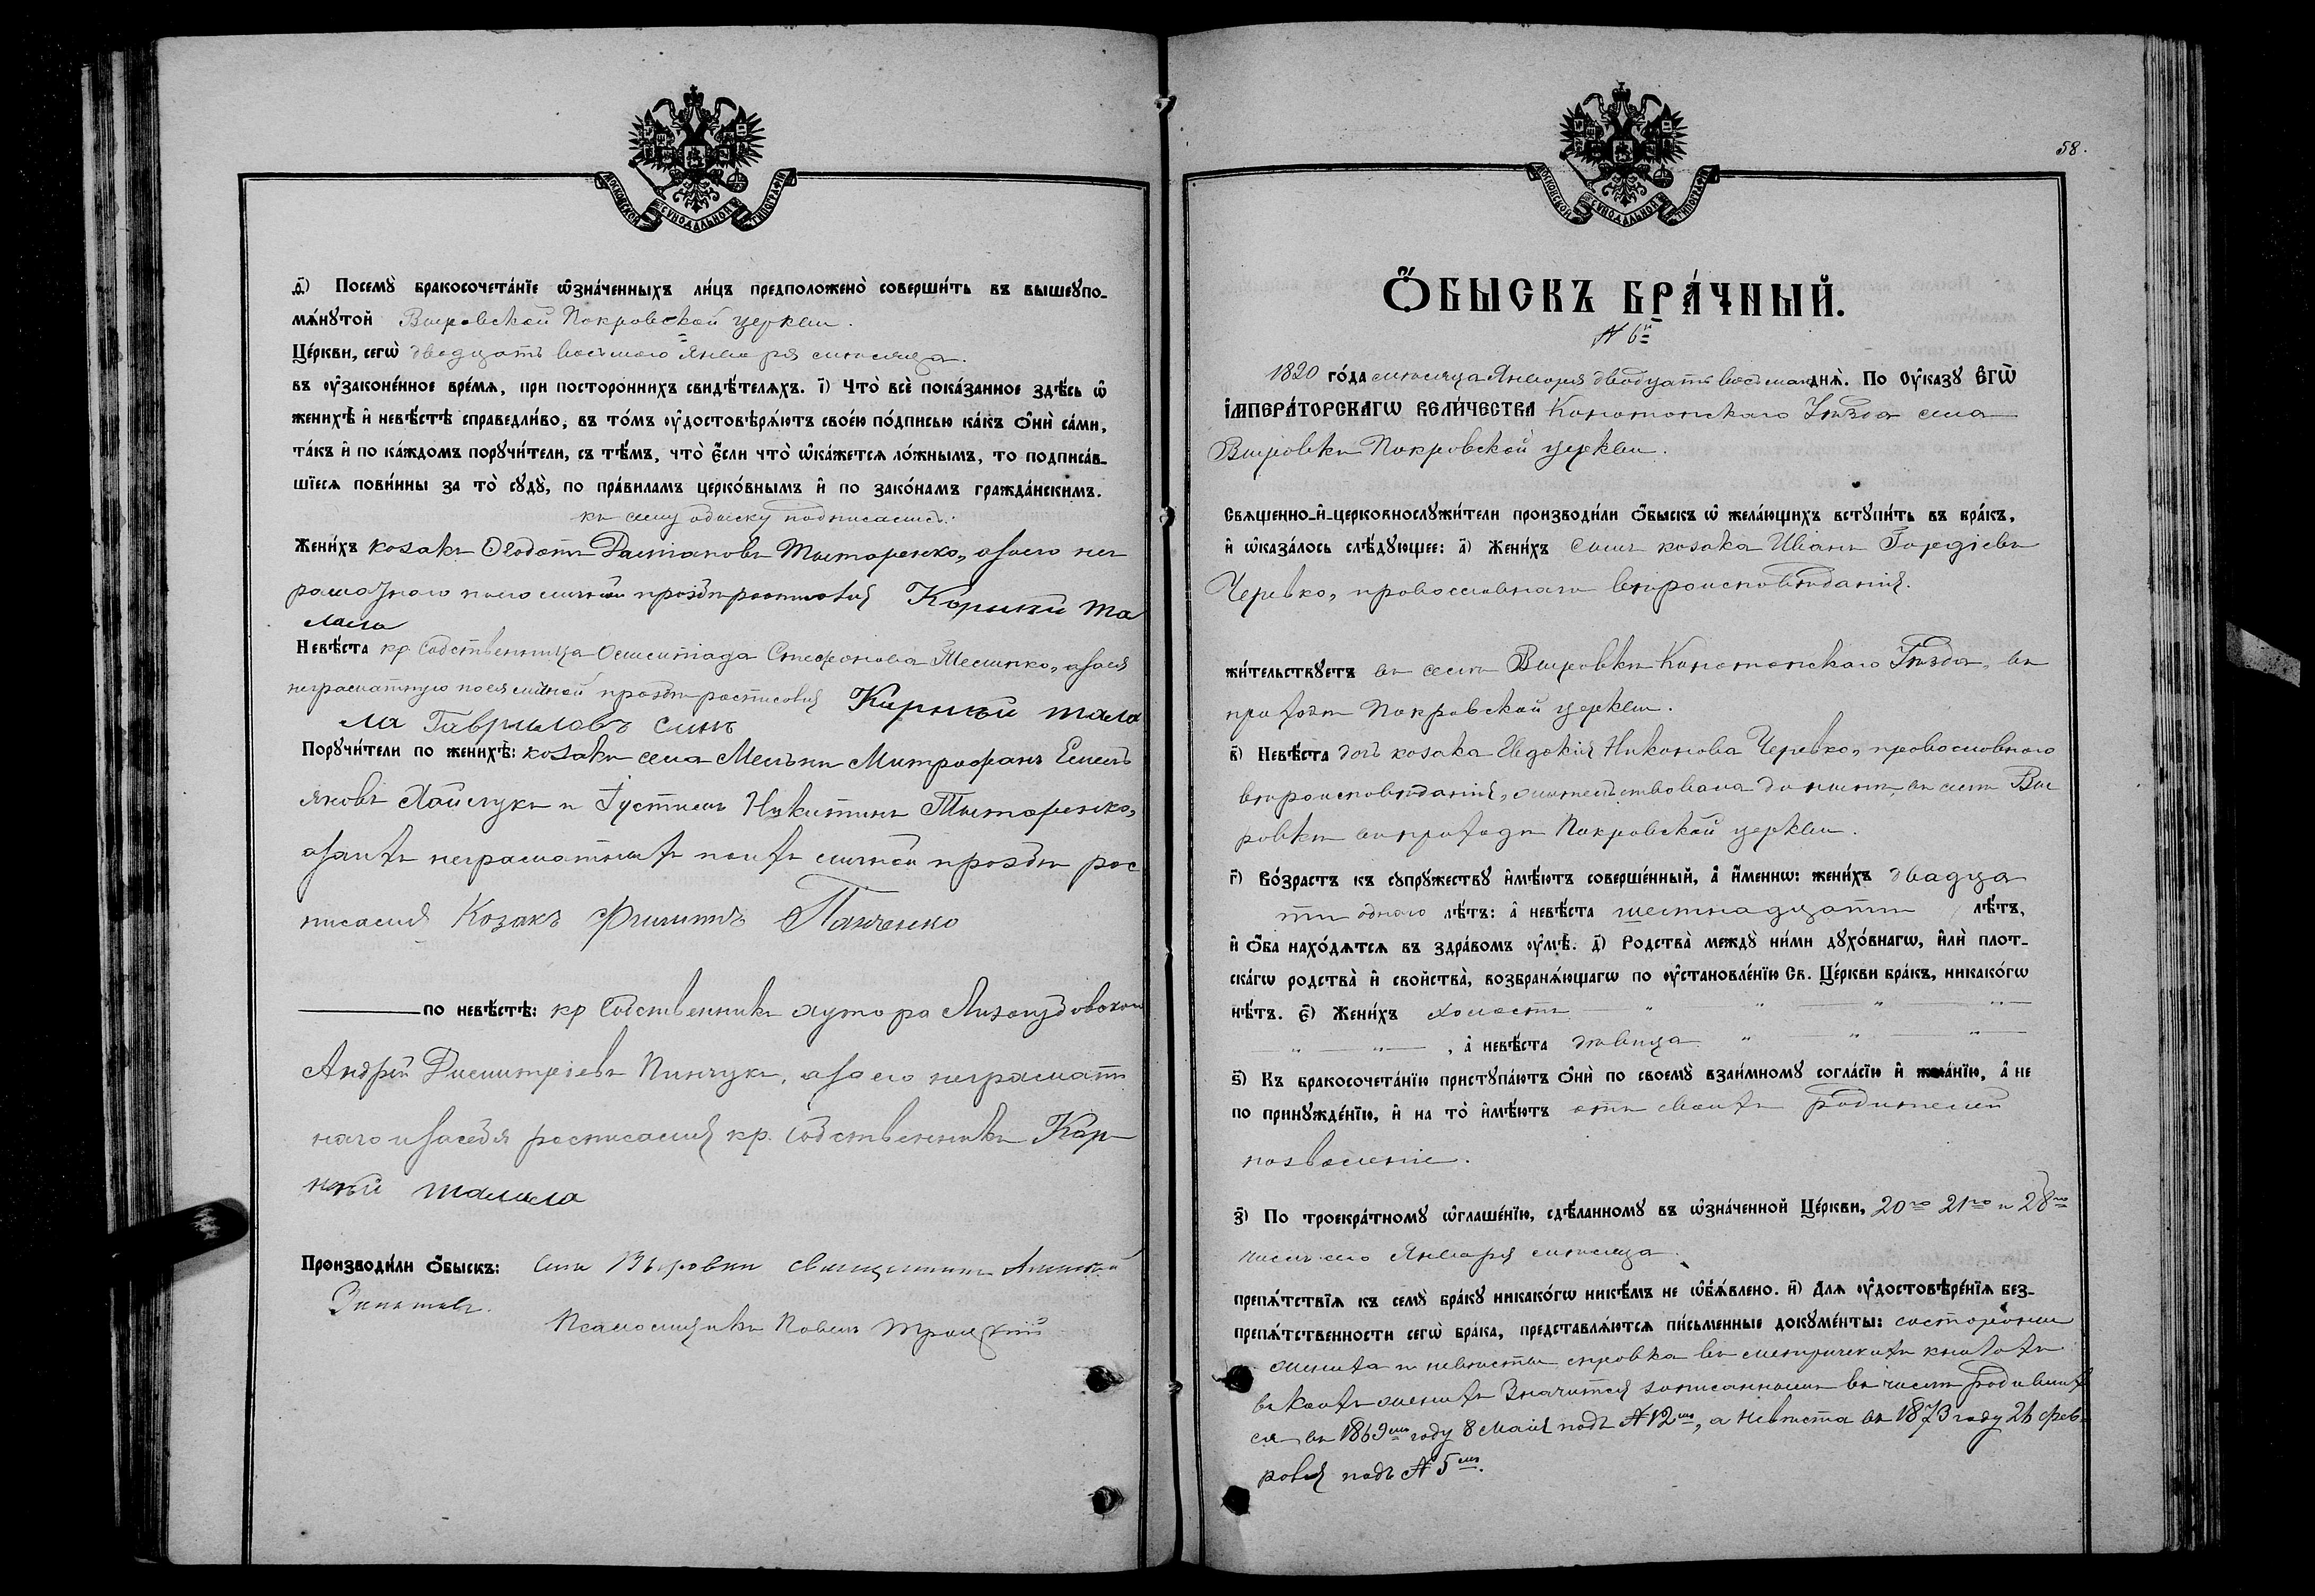 МОСКОВСКОЙ СѴНОДАЛЬНОЙ ТИПОГРАФІИ
д҃і) Посемꙋ̀ бракосочета́нїе ѡ҆зна́ченныхъ ли́цъ предположено̀ соверши́ть въ вышеꙋпо-
мѧ́нꙋтой Выровской Покровской церкви.
Це́ркви, сегѡ̀ двадцать восьмого Января месяца.
въ ᲂу҆законе́нное вре́мѧ, при постороннихъ свидѣ́телѧхъ. і҃) Что̀ всѐ пока́занное здѣ́сь ѡ҆
женихѣ̀ и҆ невѣ́стѣ справедли́во, въ то́мъ ᲂу҆достовѣрѧ́ютъ свое́ю по́дписью ка́къ ѻ҆нѝ са́ми,
та́къ и҆ по ка́ждомъ порꙋчи́тели, съ тѣ́мъ, что̀ є҆́сли что̀ ѡ҆ка́жетсѧ ло́жнымъ, то подписа́в-
шїесѧ пови́нны за то̀ сꙋдꙋ̀, по пра́виламъ церко́внымъ и҆ по зако́намъ гражда́нскимъ.
къ сему обыску подписались:
Жени́хъ козакъ Титаренко, а за его нег
рамотного по его личной прозьбе росписался Корнѣй Та
лала
Невѣ́ста кр. собственница Стефанова Тесленко, а за ея
неграматную по ея личной прозьбе росписался Корнѣй Тала
ла Гавриловъ синъ
Порꙋчи́тели по женихѣ̀: козаки села Митрофанъ Емель
яновъ и Іустинъ Никитинъ Титаренко,
а за ихъ неграмотныхъ по ихъ личной прозьбе рос
писался Козакъ Филипъ Панченко
по невѣ́стѣ: кр. собственникъ хутора
Андрей Димитріевъ Пинчукъ, а за его неграмат
наго и за себя росписался кр. собственникъ Кор
нѣй Талала
Производи́ли ѻ҆́быскъ: села Выровки священникъ
Псаломщикъ Павелъ Троицкий
58.
МОСКОВСКОЙ СѴНОДАЛЬНОЙ ТИПОГРАФІИ
Ѻ҆́БЫСКЪ БРА́ЧНЫЙ.
№ 6й
1890 го́да месяца Января двадцать восьмого днѧ̀. По Оу҆казꙋ Є҆ГѠ̀
І҆МПЕРА́ТОРСКАГѠ ВЕЛИ́ЧЕСТВА Конотопского Уезда села
Выровки Покровской церкви.
Свѧщенно-и҆-церковнослꙋжи́тели производи́ли ѻ҆́быскъ ѡ҆ жела́ющихъ встꙋпи́ть въ бра́къ,
и҆ ѡ҆каза́лось слѣ́дꙋющее: а҃) Жени́хъ сынъ козака Иванъ Гордіевъ
Черевко, православнаго вероисповеданія.
жи́тельствꙋетъ въ селе Выровки Конотопского Уезда, въ
приходе Покровской церкви.
в҃) Невѣ́ста дочь козака Евдокія Никонова Черевко, православного
вероисповеданія, жительствовала до ныне, въ селе Вы
ровки въ приходе Покровской церкви.
г҃) Во́зрастъ къ сꙋпрꙋ́жествꙋ и҆мѣ́ютъ соверше́нный, а҆ и҆́меннѡ: жени́хъ двадца
ти одного лѣ́тъ: а҆ невѣ́ста шестнадцати лѣ́тъ,
и҆ ѻ҆́ба нахо́дѧтсѧ въ здра́вомъ ᲂу҆мѣ̀. д҃) Родства̀ междꙋ̀ ни́ми дꙋхо́внагѡ, и҆лѝ плот-
ска́гѡ родства̀ и҆ свойства̀, возбранѧ́ющагѡ по ᲂу҆становле́нїю Св. Це́ркви бра́къ, никако́гѡ
нѣ́тъ. є҃) Жени́хъ холостъ
, а҆ невѣ́ста девица
ѕ҃) Къ бракосочета́нїю пристꙋпа́ютъ ѻ҆нѝ по своемꙋ̀ взаи́мномꙋ согла́сїю и҆ жела́нїю, а҆ не
по принꙋжде́нїю, и҆ на то̀ и҆мѣ́ютъ отъ своихъ родителей
позволеніе.
з҃) По троекра́тномꙋ ѡ҆глаше́нїю, сдѣ́ланномꙋ въ ѡ҆зна́ченной Це́ркви, 20го 21го и 28го
числъ сего Января месяца.
препѧ́тствїѧ къ семꙋ̀ бра́кꙋ никако́гѡ никѣ́мъ не ѡ҆бъѧ́влено. и҃) Длѧ ᲂу҆достовѣре́нїѧ без-
препѧ́тственности сегѡ̀ бра́ка, представлѧ́ютсѧ пи́сьменные докꙋме́нты: со стороны
жениха и невесты справка въ метрическихъ книгахъ
въ коихъ женихъ значится записаннымъ въ числе родивших
ся въ 1869мъ году 8 Мая подъ № 12мъ, а невеста въ 1873 году 26 фев-
раля подъ № 5мъ.